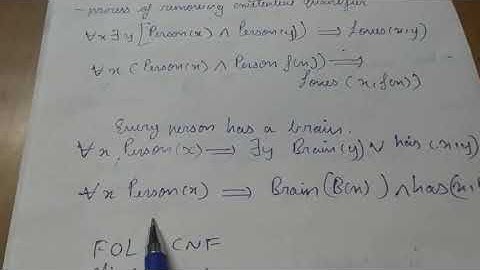 - process of removing existential quantifier
∀x ∃y [Person(x) ∧ Person(y)] ⟹ Loves(x,y)
∀x (Person(x) ∧ Person f(x)) ⟹
Loves(x, f(x))
Every person has a brain.
∀x Person(x) ⟹ ∃y Brain(y) ∨ has(x,y)
∀x Person(x) ⟹ Brain(B(x)) ∧ has(x,
FOL CNF